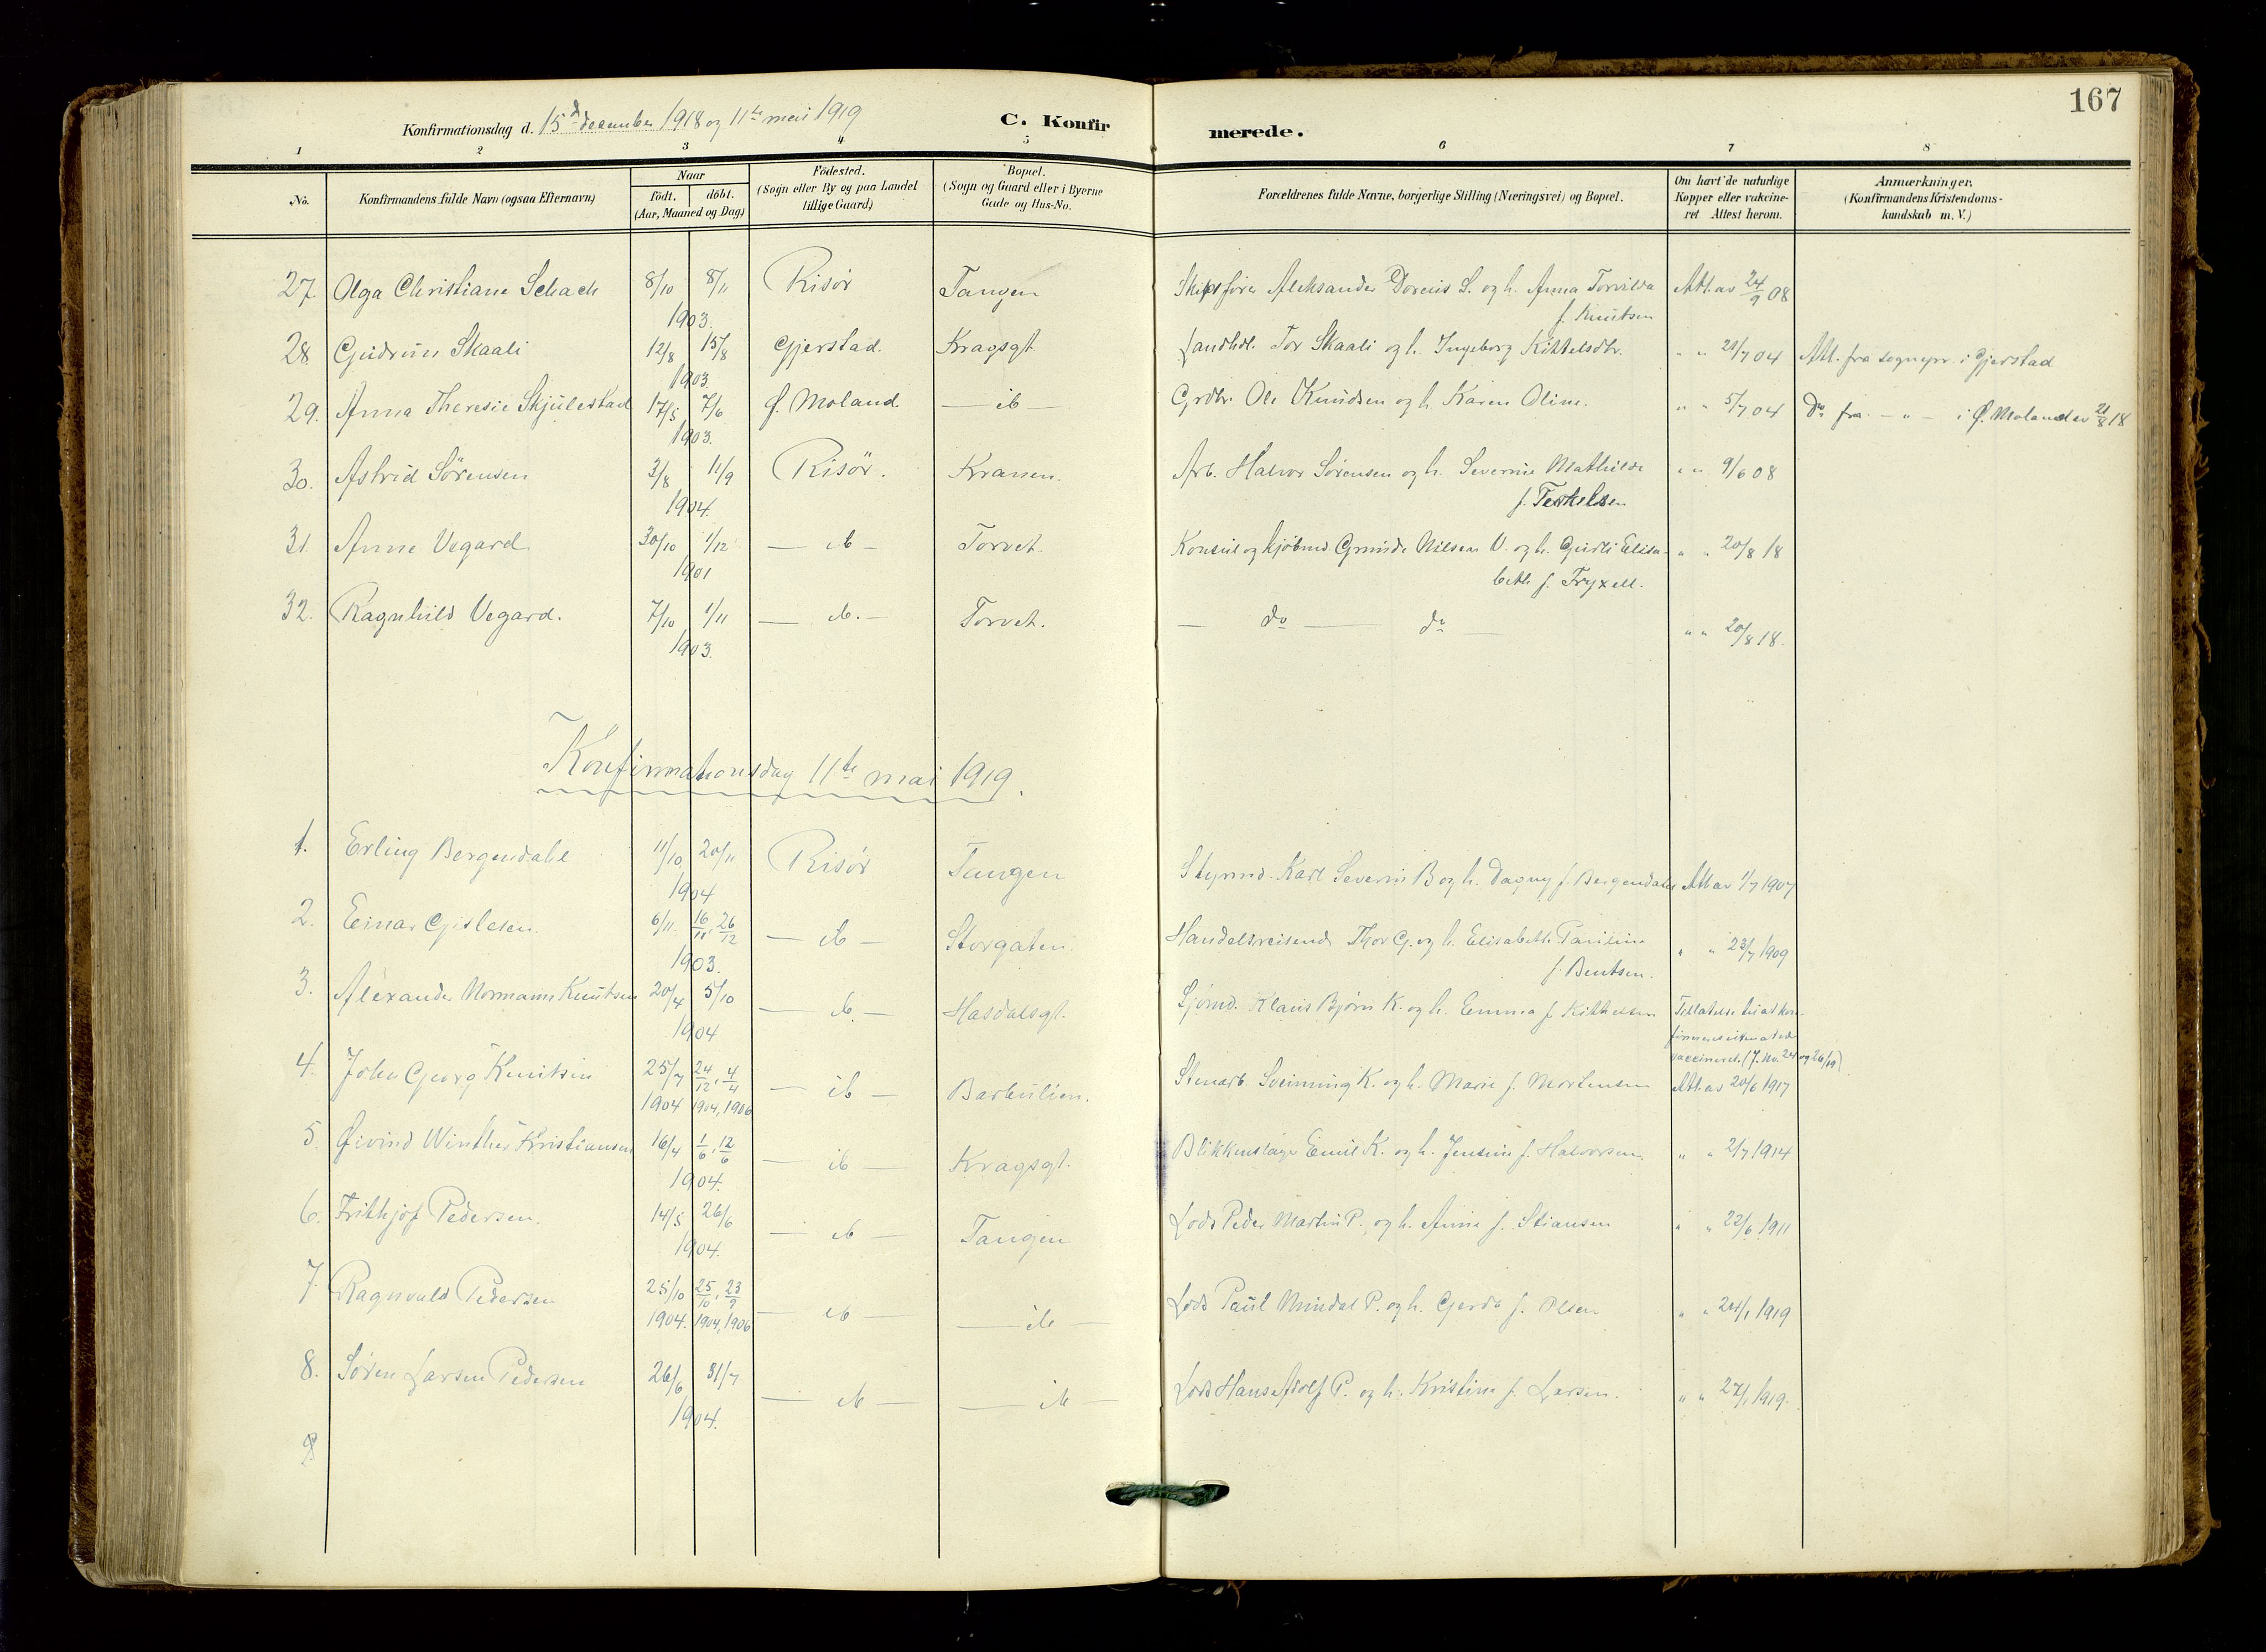 167
Konfirmationsdag d. 15d december 1918 og 11te mai 1919 C. Konfir merede.
1 2 3 4 5 6 7 8
No. Konfirmandens fulde Navn (ogsaa Efternavn) Naar födt. döbt. (Aar, Maaned og Dag) Födested. (Sogn eller By og paa Landet tillige Gaard) Bopæl. (Sogn og Gaard eller i Byerne Gade og Hus-No. Forældrenes fulde Navne, borgerlige Stilling (Næringsvei) og Bopæl. Om havt de naturlige Kopper eller vakcine- ret Attest herom. Anmærkninger. (Konfirmandens Kristendoms- kundskab m. V.)
27. Olga Christiane Schach 8/10 8/11 Risör Tangen Skipsfører Aleksander Dorenis S. og h. Anna Torvilda Att. av 24/9 08
1903. f. Knutsen
28 Gudrun Skaali 12/8 15/8 Gjerstad. Kragsgt Landhdl. Tor Skaali og h. Ingeborg Kittelsdtr. " " 21/7 04 Att. fra sognepr. i Gjerstad
1903
29. Anna Theresie Skjulestad 17/5 7/6 Ø. Moland. — ib — Grdbr. Ole Knudsen og h. Karen Oline. " " 5/7 04 Do fra — " — i Ø. Moland av 21/8 18
1903.
30. Astrid Sörensen 3/8 11/9 Risör. Kranen. Arb. Halvor Sørensen og h. Severine Mathilde " " 9/6 08
1904. f. Terkelsen
31. Anne Vegard 30/10 1/12 — ib — Torvet. Konsul og kjøbmd Grunde Nilsen V. og h. Gurli Elisa- " " 20/8 18
1901 beth f. Fryxell.
32. Ragnhild Vegard. 7/10 1/11 — ib. — Torvet. — do — do — " " 20/8 18.
1903.
Konfirmationsdag 11te mai 1919.
1. Erling Bergendahl 11/10 20/11 Risör Tangen Styrmd. Karl Severin B og h. Dagny f. Bergendahl Att av 1/7 1907
1904
2. Einar Gislesen. 6/11. 16/11, 26/12 — ib — Storgaten. Handelsreisende Thor G. og h. Elisabeth Pauline " " 23/7 1909
1903. f. Bentsen.
3. Alexander Normann Knutsen 20/4 5/10 — ib. — Hasdalsgt. Sjømd. Klaus Bjørn K. og h. Emma f. Kittelsen Tillatelse til at kon-
1904 firmeres uten at være
vaccineret. (J. No. 24 og 26/19)
4. John Georg Knutsen 25/7 24/12, 4/4 — ib — Barbulien. Stenarb. Sveinung K. og h. Marie f. Mortensen Att. av 20/6 1917
1904 1904, 1906
5. Øivind Winther Kristiansen 16/4 1/6, 12/6 — ib — Kragsgt. Blikkenslager Emil K. og h. Jensine f. Halvorsen. " " 2/7 1914
1904.
6. Frithjof Pedersen. 14/5 26/6 — ib — Tangen Lods Peder Martin P. og h. Anne f. Stiansen " " 22/6 1911
1904.
7. Ragnvald Pedersen 25/10 25/10, 23/9 — ib — — ib — Lods Paul Mindal P. og h. Gerda f. Olsen " " 24/1 1919
1904. 1904, 1906
8. Søren Larsen Pedersen 26/6 31/7 — ib — — ib — Lods Hans Adolf P. og h. Kristine f. Larsen. " " 27/1 1919.
1904.